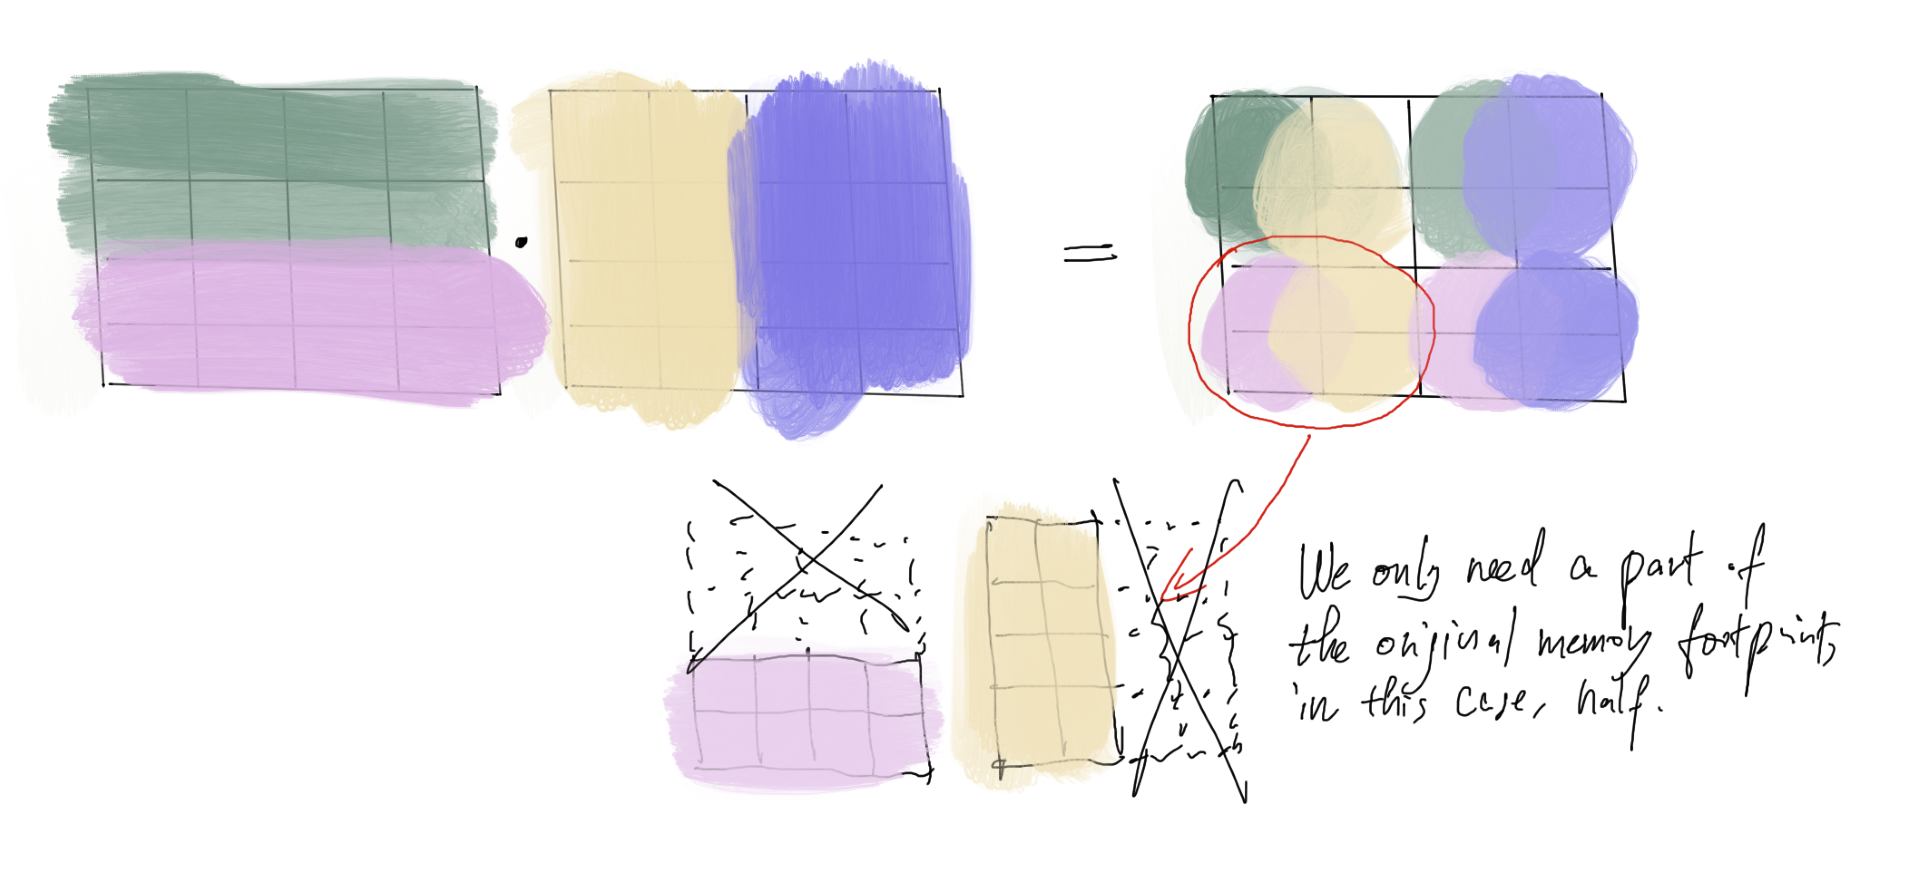 We only need a part of
the original memory footprint,
in this case, half.